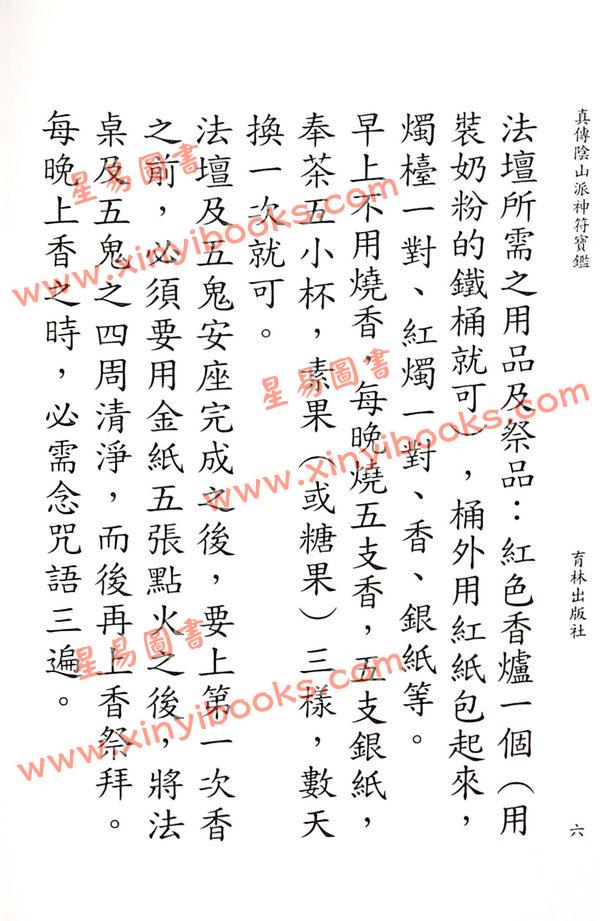 真傳陰山派神符寶鑑
育林出版社
六
法壇所需之用品及祭品：紅色香爐一個（用
裝奶粉的鐵桶就可），桶外用紅紙包起來，
燭檯一對、紅燭一對、香、銀紙等。
早上不用燒香，每晚燒五支香，五支銀紙，
奉茶五小杯，素果（或糖果）三樣，數天
換一次就可。
法壇及五鬼安座完成之後，要上第一次香
之前，必須要用金紙五張點火之後，將法
桌及五鬼之四周清淨，而後再上香祭拜。
每晚上香之時，必需念咒語三遍。
星易圖書
www.xinyibooks.com
星易圖書
www.xinyibooks.com
星易圖書
www.xinyibooks.com